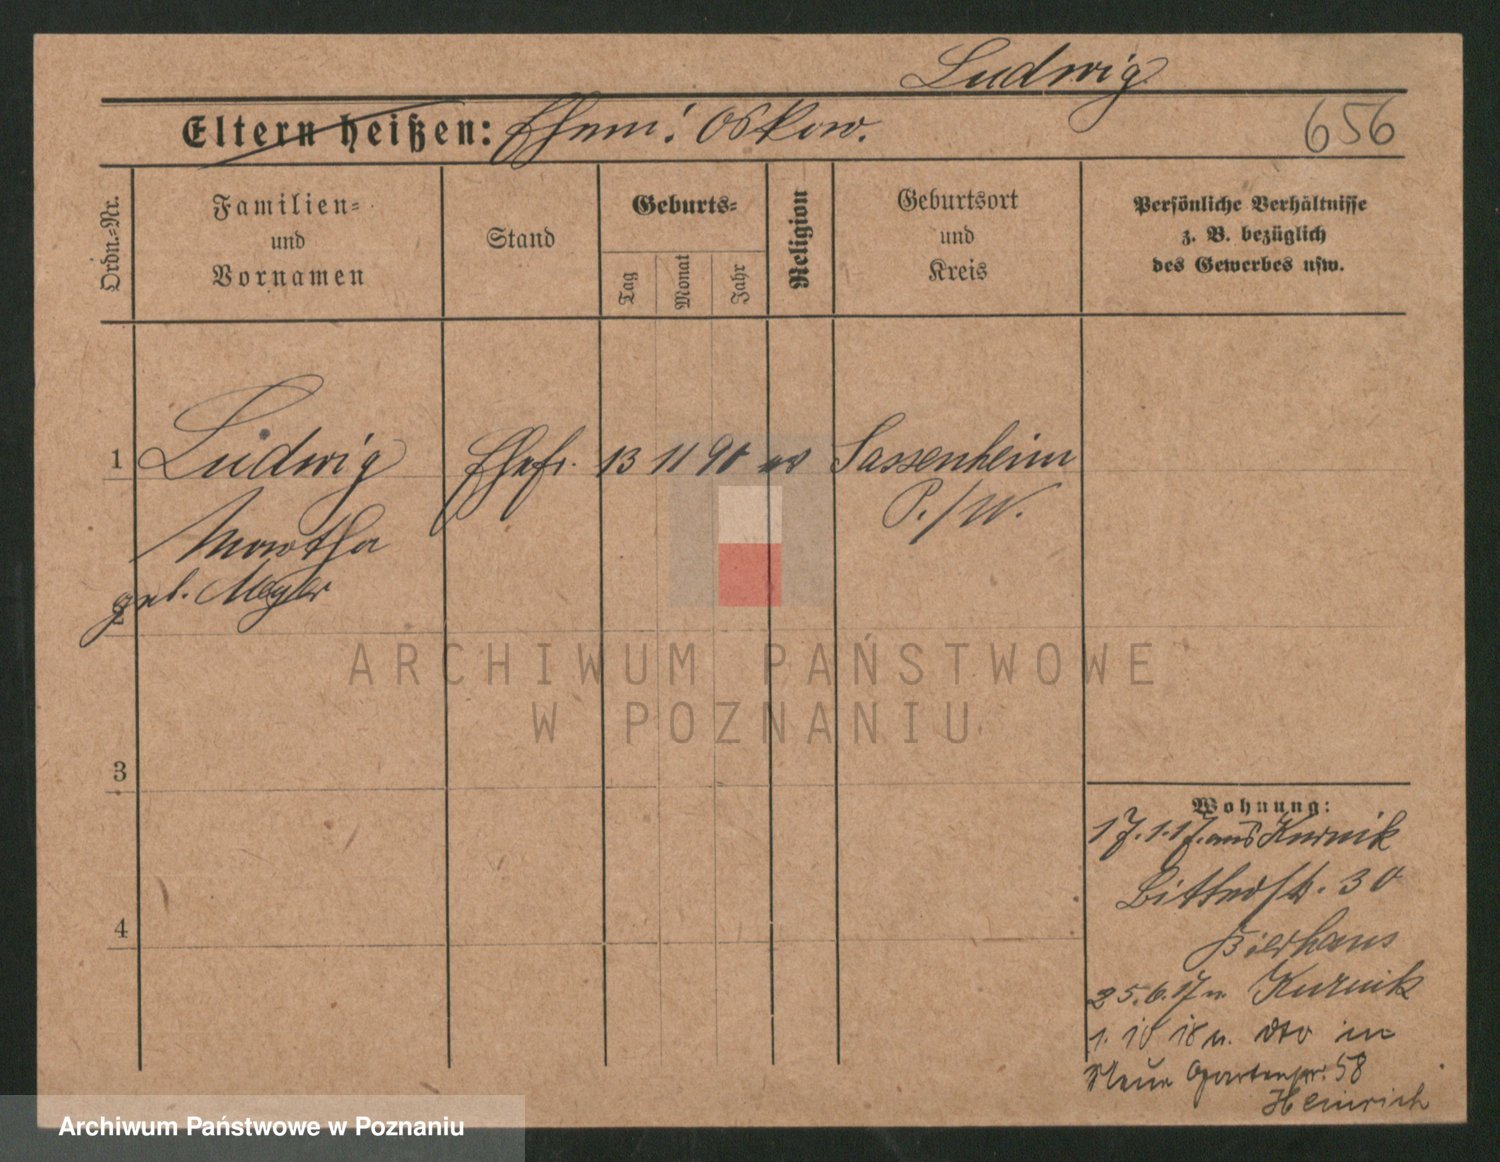 Ludwig
Eltern heißen: Ehem: Oskar.
656
Ordn.=Nr.
Familien=
und
Vornamen
Stand
Geburts=
Tag
Monat
Jahr
Religion
Geburtsort
und
Kreis
Persönliche Verhältnisse
z. B. bezüglich
des Gewerbes usw.
1 Ludwig Ehefr. 13 11 90 ev Sassenheim
P./W.
Martha
geb. Meyer
2
ARCHIWUM PAŃSTWOWE
W POZNANIU
3
4
Wohnung:
17.1.17. aus Kurnik
Bitterstr. 30
Bierhaus
25.6.17 n. Kurnik
1. 10 18 v. dto in
Neue Gartenstr. 58
Heinrich
Archiwum Państwowe w Poznaniu